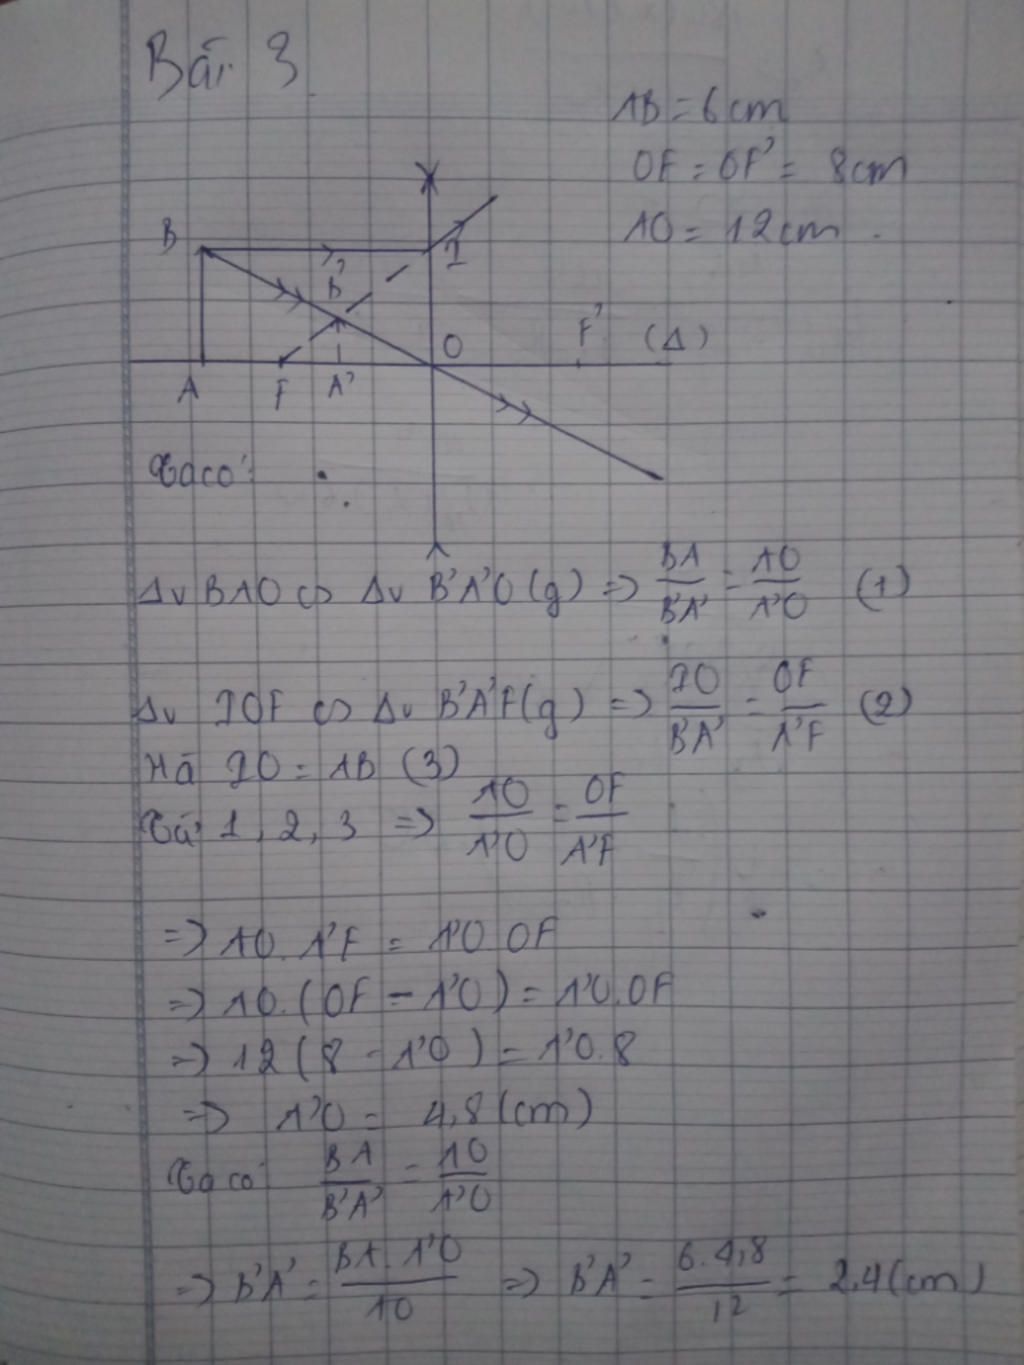 Bài 3
AB = 6cm
OF = OF' = 8cm
AO = 12cm.
B
I
B'
O
F'
(Δ)
A
F
A'
Ta có:
Δv BAO ∽ Δv B'A'O (g) => BA/B'A' = AO/A'O (1)
Δv IOF ∽ Δv B'A'F (g) => IO/B'A' = OF/A'F (2)
Mà IO = AB (3)
Từ 1, 2, 3 => AO/A'O = OF/A'F
=> AO. A'F = A'O OF
=> AO.(OF - A'O) = A'O.OF
=> 12(8 - A'O) = A'O.8
=> A'O = 4,8 (cm)
Ta có BA/B'A' = AO/A'O
=> B'A' = BA. A'O/AO => B'A' = 6.4,8/12 = 2,4 (cm)